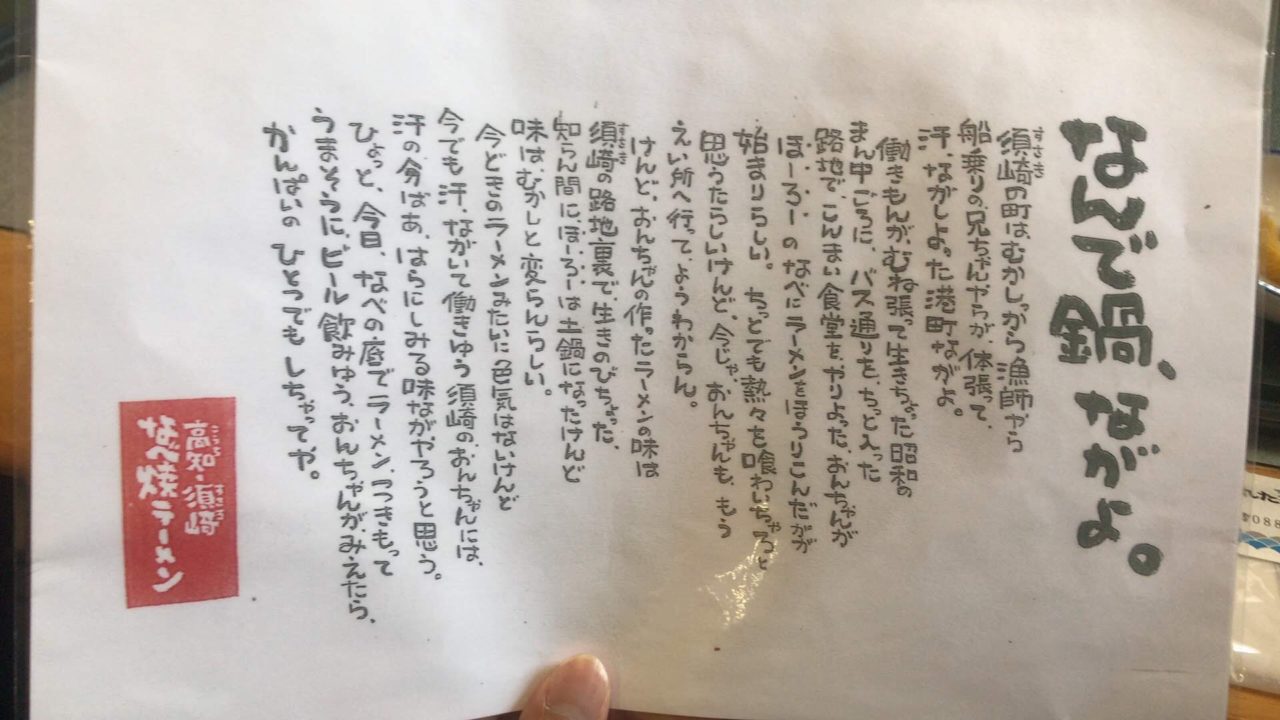 なんで鍋、ながよ。
須崎の町はむかしっから漁師やら
すさき
船乗りの兄ちゃんやらが、体張って、
汗、ながしよった港町ながよ。
働きもんが、むね張って生きちょった昭和の
まん中ごろに、バス通りを、ちっと入った
路地で、こんまい食堂を、やりよった、おんちゃんが
ほーろーのなべにラーメンをほうりこんだがが
始まりらしい。ちっとでも熱々を喰わいちゃろっと
思うたらしいけんど、今じゃ、おんちゃんも、もう
えい所へ行って、ようわからん。
けんど、おんちゃんの作ったラーメンの味は
須崎の路地裏で、生きのびちょった。
すさき
知らん間に、ほーろーは土鍋になったけんど
味は、むかしと変らんらしい。
今どきのラーメンみたいに色気はないけんど
今でも汗、ながいて働きゆう須崎のおんちゃんには、
汗の分ばあ、はらにしみる味ながやろうと思う。
ひょっと、今日、なべの底でラーメン、つつきもって
うまそうに、ビール飲みゆう、おんちゃんがみえたら、
かんぱいの ひとつでも しちゃってや。
高知・須崎
こうち すさき
なべ焼ラーメン
088